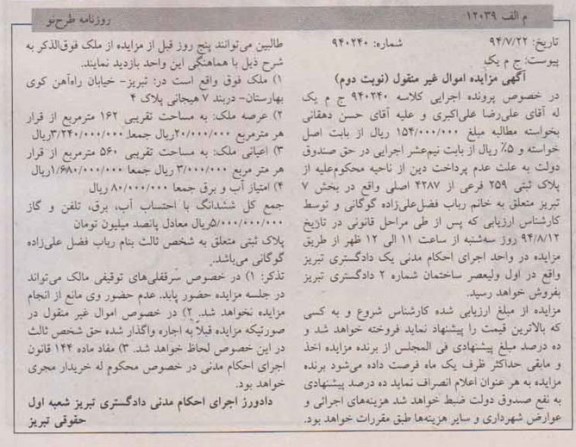 م الف ۱۲۰۳۹
روزنامه طرح‌نو
تاریخ: ۹۴/۷/۲۲ شماره: ۹۴۰۲۴۰
پیوست: ج م یک
آگهی مزایده اموال غیر منقول (نوبت دوم)
در خصوص پرونده اجرایی کلاسه ۹۴۰۲۴۰ ج م یک
له آقای علی‌رضا علی‌اکبری و علیه آقای حسن دهقانی
بخواسته مطالبه مبلغ ۱۵۴/۰۰۰/۰۰۰ ریال از بابت اصل
خواسته و ۵٪ ریال از بابت نیم‌عشر اجرایی در حق صندوق
دولت به علت عدم پرداخت دین از ناحیه محکوم‌علیه از
پلاک ثبتی ۲۵۹ فرعی از ۴۲۸۷ اصلی واقع در بخش ۷
تبریز متعلق به خانم رباب فضل‌علی‌زاده گوگانی و توسط
کارشناس ارزیابی که پس از طی مراحل قانونی در تاریخ
۹۴/۸/۱۲ روز سه‌شنبه از ساعت ۱۱ الی ۱۲ ظهر از طریق
مزایده در واحد اجرای احکام مدنی یک دادگستری تبریز
واقع در اول ولیعصر ساختمان شماره ۲ دادگستری تبریز
بفروش خواهد رسید.
مزایده از مبلغ ارزیابی شده کارشناس شروع و به کسی
که بالاترین قیمت را پیشنهاد نماید فروخته خواهد شد و
ده درصد مبلغ پیشنهادی فی المجلس از برنده مزایده اخذ
و مابقی حداکثر ظرف یک ماه فرصت داده می‌شود برنده
مزایده به هر عنوان اعلام انصراف نماید ده درصد پیشنهادی
به نفع صندوق دولت ضبط خواهد شد هزینه‌های اجرائی و
عوارض شهرداری و سایر هزینه‌ها طبق مقررات خواهد بود.
طالبین می‌توانند پنج روز قبل از مزایده از ملک فوق‌الذکر به
شرح ذیل با هماهنگی این واحد بازدید نمایند.
۱) ملک فوق واقع است در: تبریز- خیابان راه‌آهن کوی
بهارستان- دربند ۷ هیجانی پلاک ۴
۲) عرصه ملک: به مساحت تقریبی ۱۶۲ مترمربع از قرار
هر مترمربع ۲۰/۰۰۰/۰۰۰ ریال جمعا: ۳/۲۴۰/۰۰۰/۰۰۰ریال
۳) اعیانی ملک: به مساحت تقریبی ۵۶۰ مترمربع از قرار
هر متر مربع ۳/۰۰۰/۰۰۰ ریال جمعا ۱/۶۸۰/۰۰۰/۰۰۰ریال
۴) امتیاز آب و برق جمعا ۸۰/۰۰۰/۰۰۰ ریال
جمع کل ششدانگ با احتساب آب، برق، تلفن و گاز
۵/۰۰۰/۰۰۰/۰۰۰ریال معادل پانصد میلیون تومان
پلاک ثبتی متعلق به شخص ثالث بنام رباب فضل علی‌زاده
گوگانی می‌باشد.
تذکر: ۱) در خصوص سرقفلی‌های توقیفی مالک می‌تواند
در جلسه مزایده حضور یابد. عدم حضور وی مانع از انجام
مزایده نخواهد شد. ۲) در خصوص اموال غیر منقول در
صورتیکه مزایده قبلاً به اجاره واگذار شده حق شخص ثالث
در این خصوص لحاظ خواهد شد. ۳) مفاد ماده ۱۴۴ قانون
اجرای احکام مدنی در خصوص محکوم له خریدار مجری
خواهد بود.
دادورز اجرای احکام مدنی دادگستری تبریز شعبه اول
حقوقی تبریز